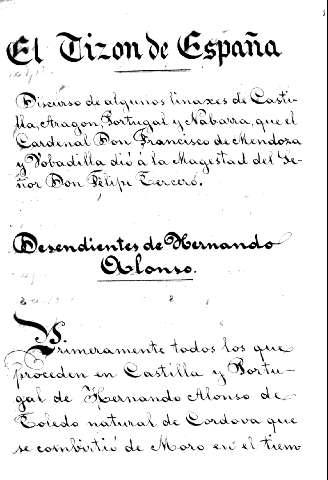 El Tizon de España
Discurso de algunos linaxes de Casti-
lla, Aragon, Portugal y Nabarra, que el
Cardenal Don Francisco de Mendoza
y Vobadilla dió á la Magestad del Se-
ñor Don Felipe Tercero.
Desendientes de Hernando
Alonso.
Primeramente todos los que
proceden en Castilla y Portu-
gal de Hernando Alonso de
Toledo natural de Cordova que
se combirtió de Moro en el tiem